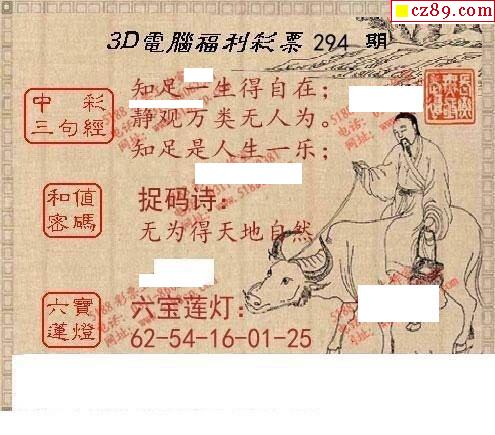 cz89.com
3D電腦福利彩票 294 期
中彩
三句經
知足一生得自在；
静观万类无人为。
知足是人生一乐；
和值
密碼
捉码诗：
无为得天地自然
六寶
蓮燈
六宝莲灯：
62-54-16-01-25